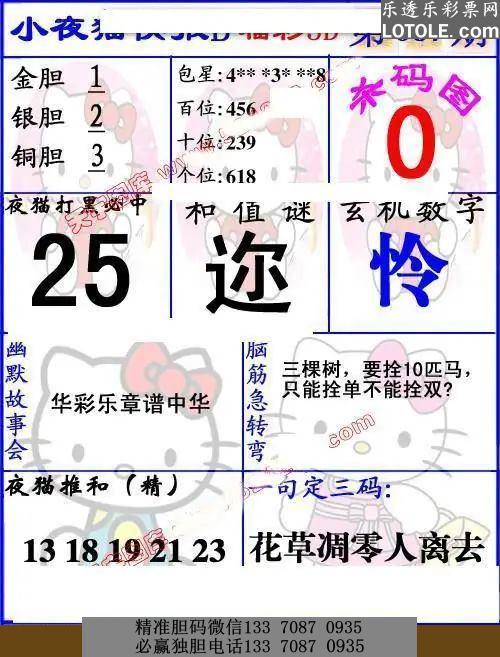 乐透乐彩票网
LOTOLE.COM
小夜猫
福彩3D
第
期
金胆 1
银胆 2
铜胆 3
包星:4** *3* **8
百位:456
十位:239
个位:618
杀码图
0
夜猫打黑必中
25
和值谜
迩
玄机数字
怜
幽默故事会
华彩乐章谱中华
脑筋急转弯
三棵树，要拴10匹马，
只能拴单不能拴双?
com
夜猫推和（精）
13 18 19 21 23
一句定三码:
花草凋零人离去
精准胆码微信133 7087 0935
必赢独胆电话133 7087 0935